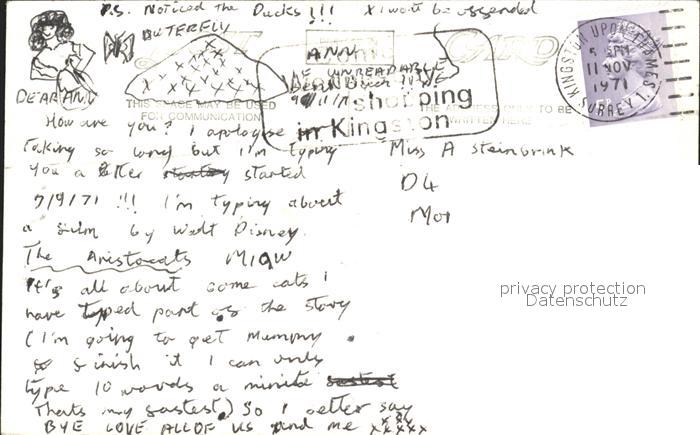 P.S. Noticed the Ducks !!! x I won't be offended
BUTTERFLY
DEAR ANN
THIS SPACE MAY BE USED
FOR COMMUNICATION
ANN
UNREADABLE
9/11/71
shopping
in Kingston
KINGSTON UPON THAMES
SURREY
5 PM
11 NOV
1971
How are you? I apologise
taking so long but I'm typing
you a letter started
7/9/71 !!! I'm typing about
a film by Walt Disney.
The Aristocats MIOW
It's all about some cats I
have typed part of the story
(I'm going to get Mummy
to finish it I can only
type 10 words a minite fastest
Thats my fastest) So I better say
BYE LOVE ALL OF US and me xxxxx
Miss A Steinbrink
D4
Mot
privacy protection
Datenschutz